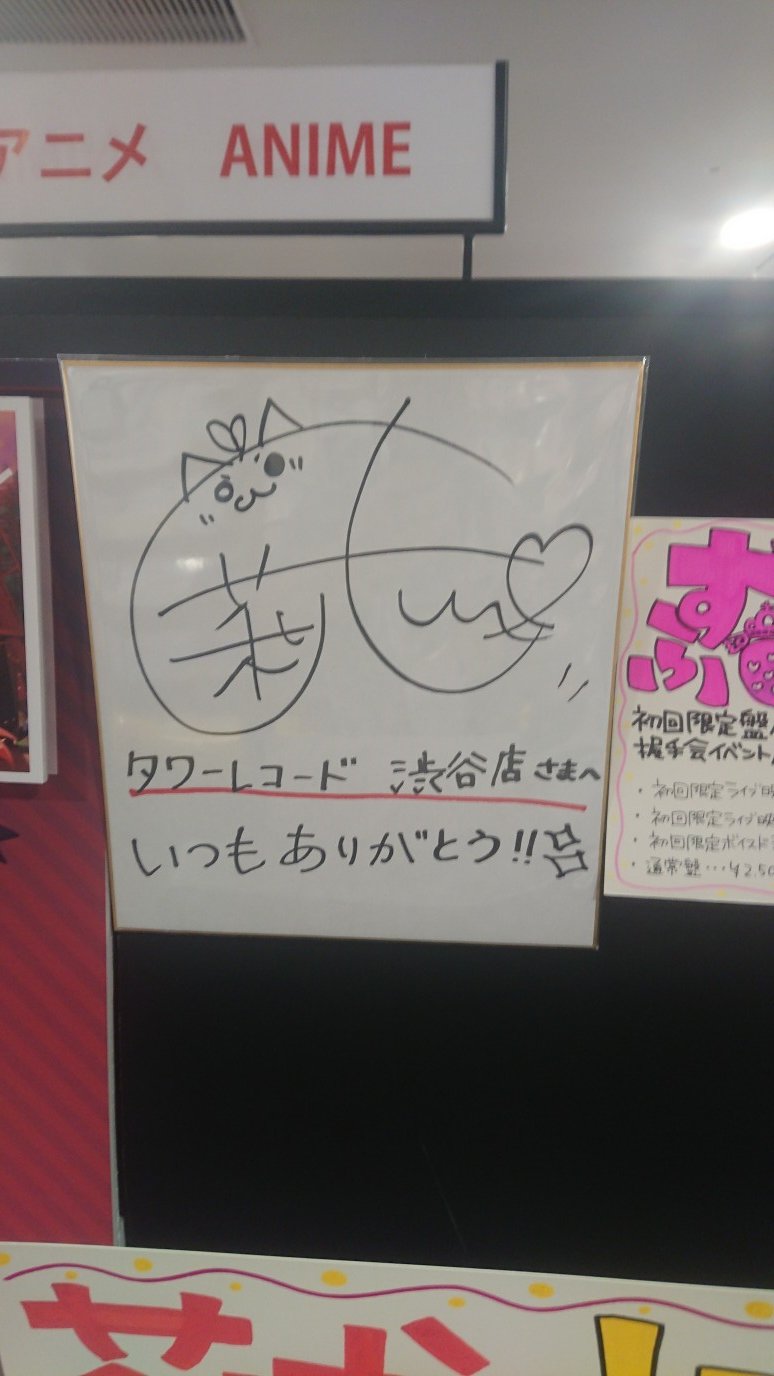 アニメ ANIME
タワーレコード 渋谷店 さまへ
いつも ありがとう!!
初回限定盤
握手会イベント
・初回限定ライブ
・初回限定ライブ
・初回限定ボイスド
・通常盤…¥2,50